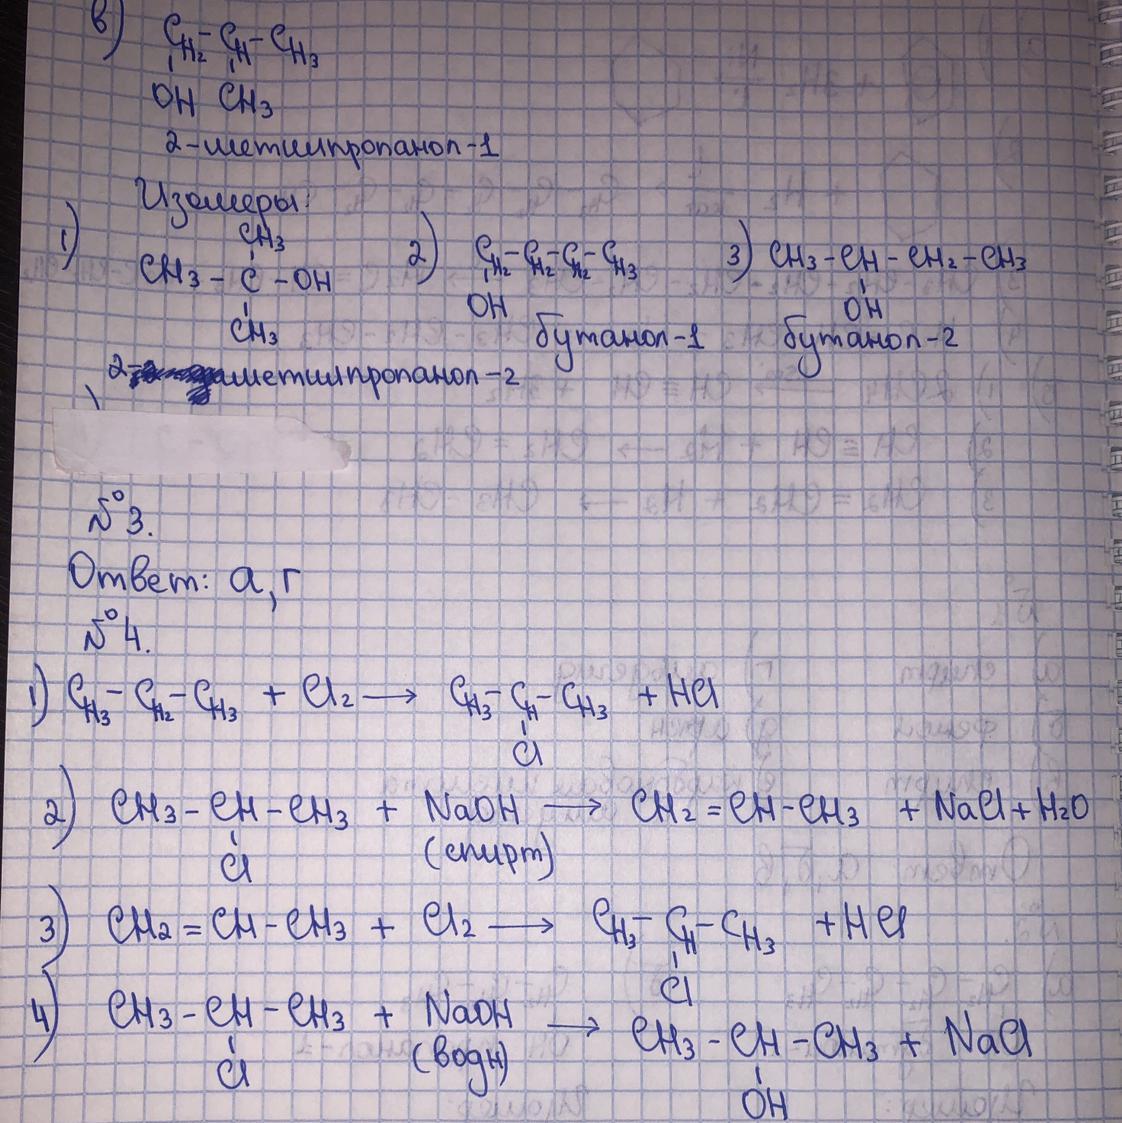 в) CH2-CH-CH3
OH CH3
2-метилпропанол-1
Изомеры:
1) CH3
CH3-C-OH
CH3
2-метилпропанол-2
2) CH2-CH2-CH2-CH3
OH
бутанол-1
3) CH3-CH-CH2-CH3
OH
бутанол-2
№3.
Ответ: а, г
№4.
1) CH3-CH2-CH3 + Cl2 → CH3-CH-CH3 + HCl
Cl
2) CH3-CH-CH3 + NaOH → CH2=CH-CH3 + NaCl + H2O
Cl (спирт)
3) CH2=CH-CH3 + Cl2 → CH3-CH-CH3 + HCl
Cl
4) CH3-CH-CH3 + NaOH → CH3-CH-CH3 + NaCl
Cl (водн) OH